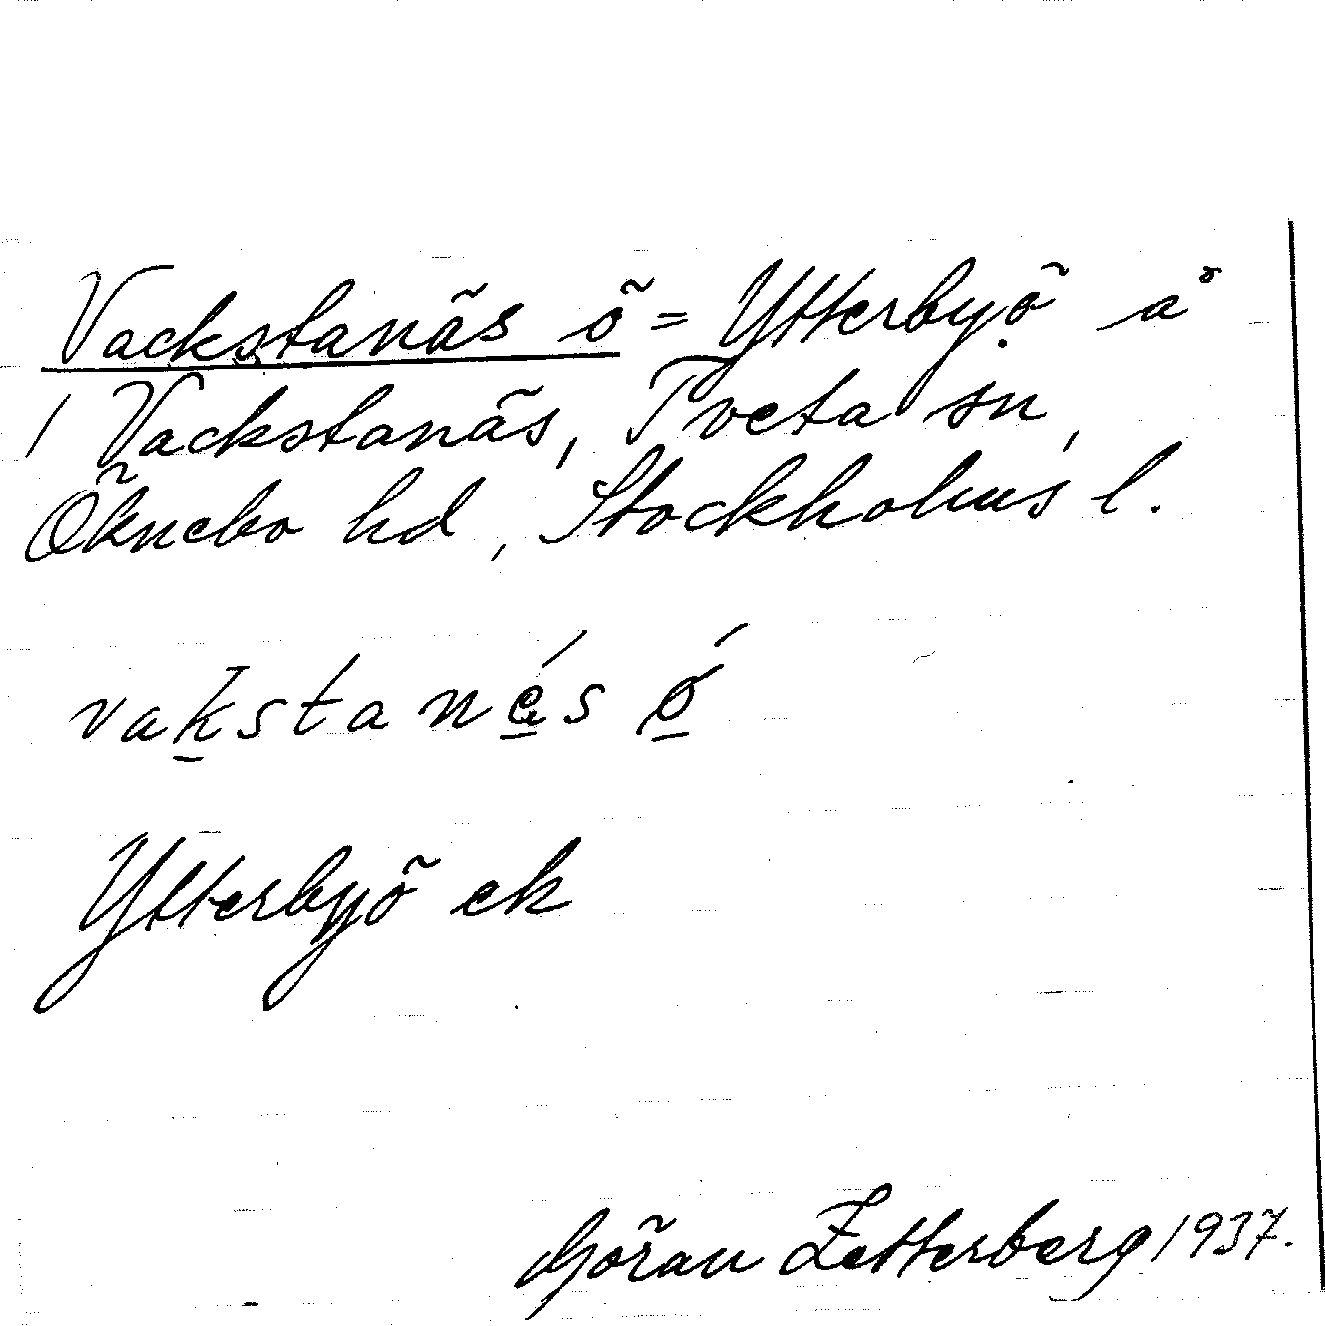 Vackstanäs ö = Ytterbyö å
1 Vackstanäs, Tveta sn,
Öknebo hd, Stockholms l.
vakstanǽs ǿ
Ytterbyö ek
Göran Zetterberg 1937.